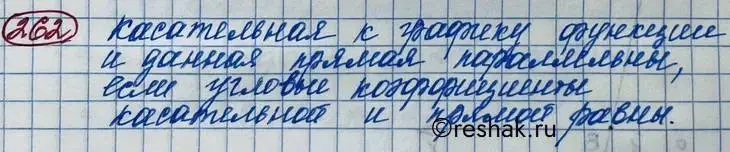 262 Касательная к графику функции
и данная прямая параллельны,
если угловые коэффициенты
касательной и прямой равны.
©reshak.ru